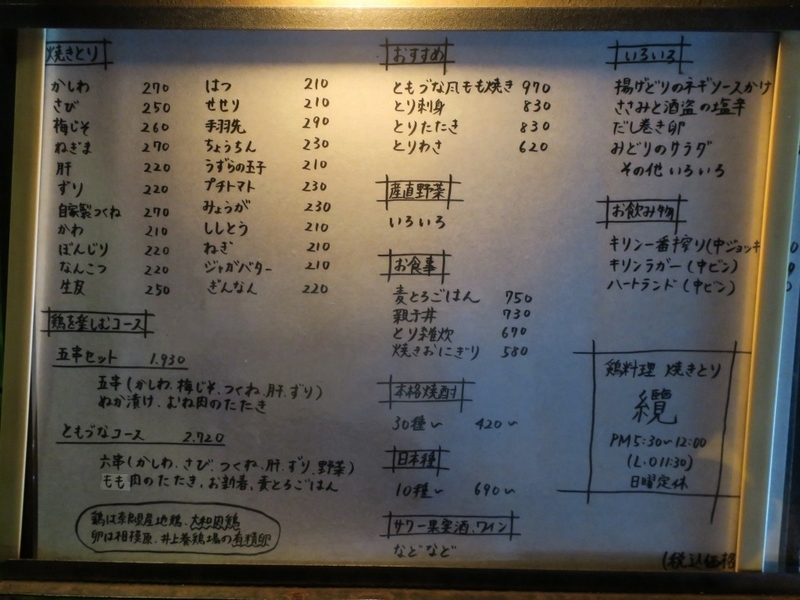 焼きとり
かしわ 270
さび 250
梅じそ 260
ねぎま 270
肝 220
ずり 220
自家製つくね 270
かわ 210
ぼんじり 220
なんこつ 220
生皮 250
はつ 210
せせり 210
手羽先 290
ちょうちん 230
うずらの玉子 210
プチトマト 230
みょうが 230
ししとう 210
ねぎ 210
ジャガバター 210
ぎんなん 220
鶏を楽しむコース
五串セット 1.930
五串(かしわ、梅じそ、つくね、肝、ずり)
ぬか漬け、むね肉のたたき
ともづなコース 2.720
六串(かしわ、さび、つくね、肝、ずり、野菜)
もも肉のたたき、お新香、麦とろごはん
鶏は奈良県産地鶏、大和肉鶏
卵は相模原、井上養鶏場の有精卵
おすすめ
ともづな風もも焼き 970
とり刺身 830
とりたたき 830
とりわさ 620
産直野菜
いろいろ
お食事
麦とろごはん 750
親子丼 730
とり雑炊 670
焼きおにぎり 580
本格焼酎
30種~ 420~
日本種
10種~ 690~
サワー果実酒、ワイン
などなど
いろいろ
揚げどりのネギソースかけ
ささみと酒盗の塩辛
だし巻き卵
みどりのサラダ
その他いろいろ
お飲み物
キリン一番搾り(中ジョッキ
キリンラガー(中ビン)
ハートランド(中ビン)
鶏料理 焼きとり
纜
PM5:30~12:00
(L.O11:30)
日曜定休
(税込価格